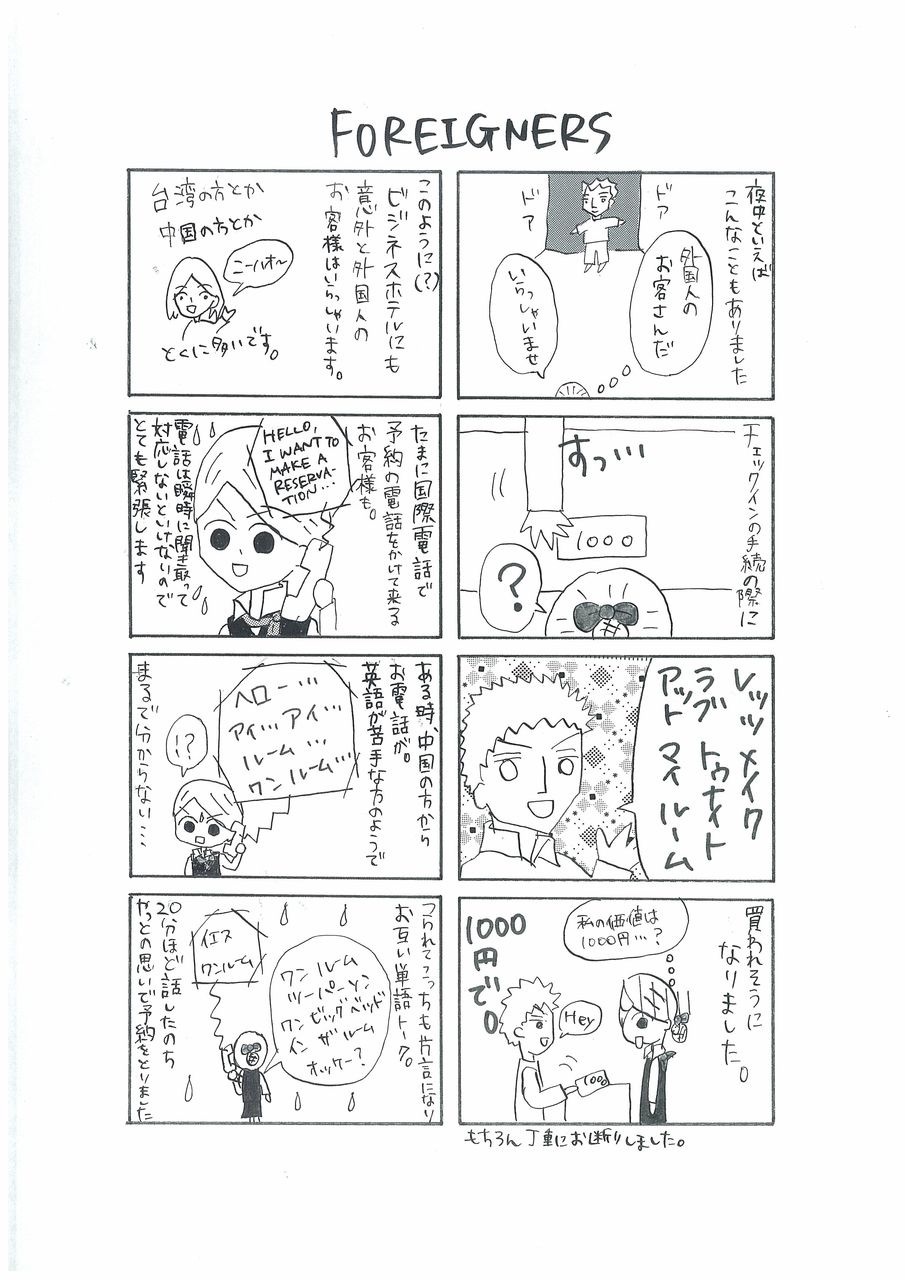 FOREIGNERS
夜中といえば
こんなこともありました
ドア
ドア
外国人の
お客さんだ
いらっしゃいませ
チェックインの手続の際に
すっ…
1000
?
レッツ メイク
ラブ トゥナイト
アット マイ ルーム
買われそうに
なりました。
私の価値は
1000円…?
Hey
1000
1000
円で。
もちろん丁重にお断りしました。
このように(?)
ビジネスホテルにも
意外と外国人の
お客様はいらっしゃいます。
台湾の方とか
中国の方とか
ニーハオ〜
とくに多いです。
たまに国際電話で
予約の電話をかけて来る
お客様も。
HELLO,
I WANT TO
MAKE A
RESERVA-
TION...
電話は瞬時に聞き取って
対応しないといけないので
とても緊張します
ある時、中国の方から
お電話が。
英語が苦手な方のようで
ヘロー…
アイ…アイ…
ルーム…
ワンルーム…
!?
まるで分からない…
つられてこっちも片言になり
お互い単語トーク。
ワンルーム
ツーパーソン
ワンビッグベッド
インザルーム
オッケー?
イエス
ワンルーム
20分ほど話したのち
やっとの思いで予約をとりました